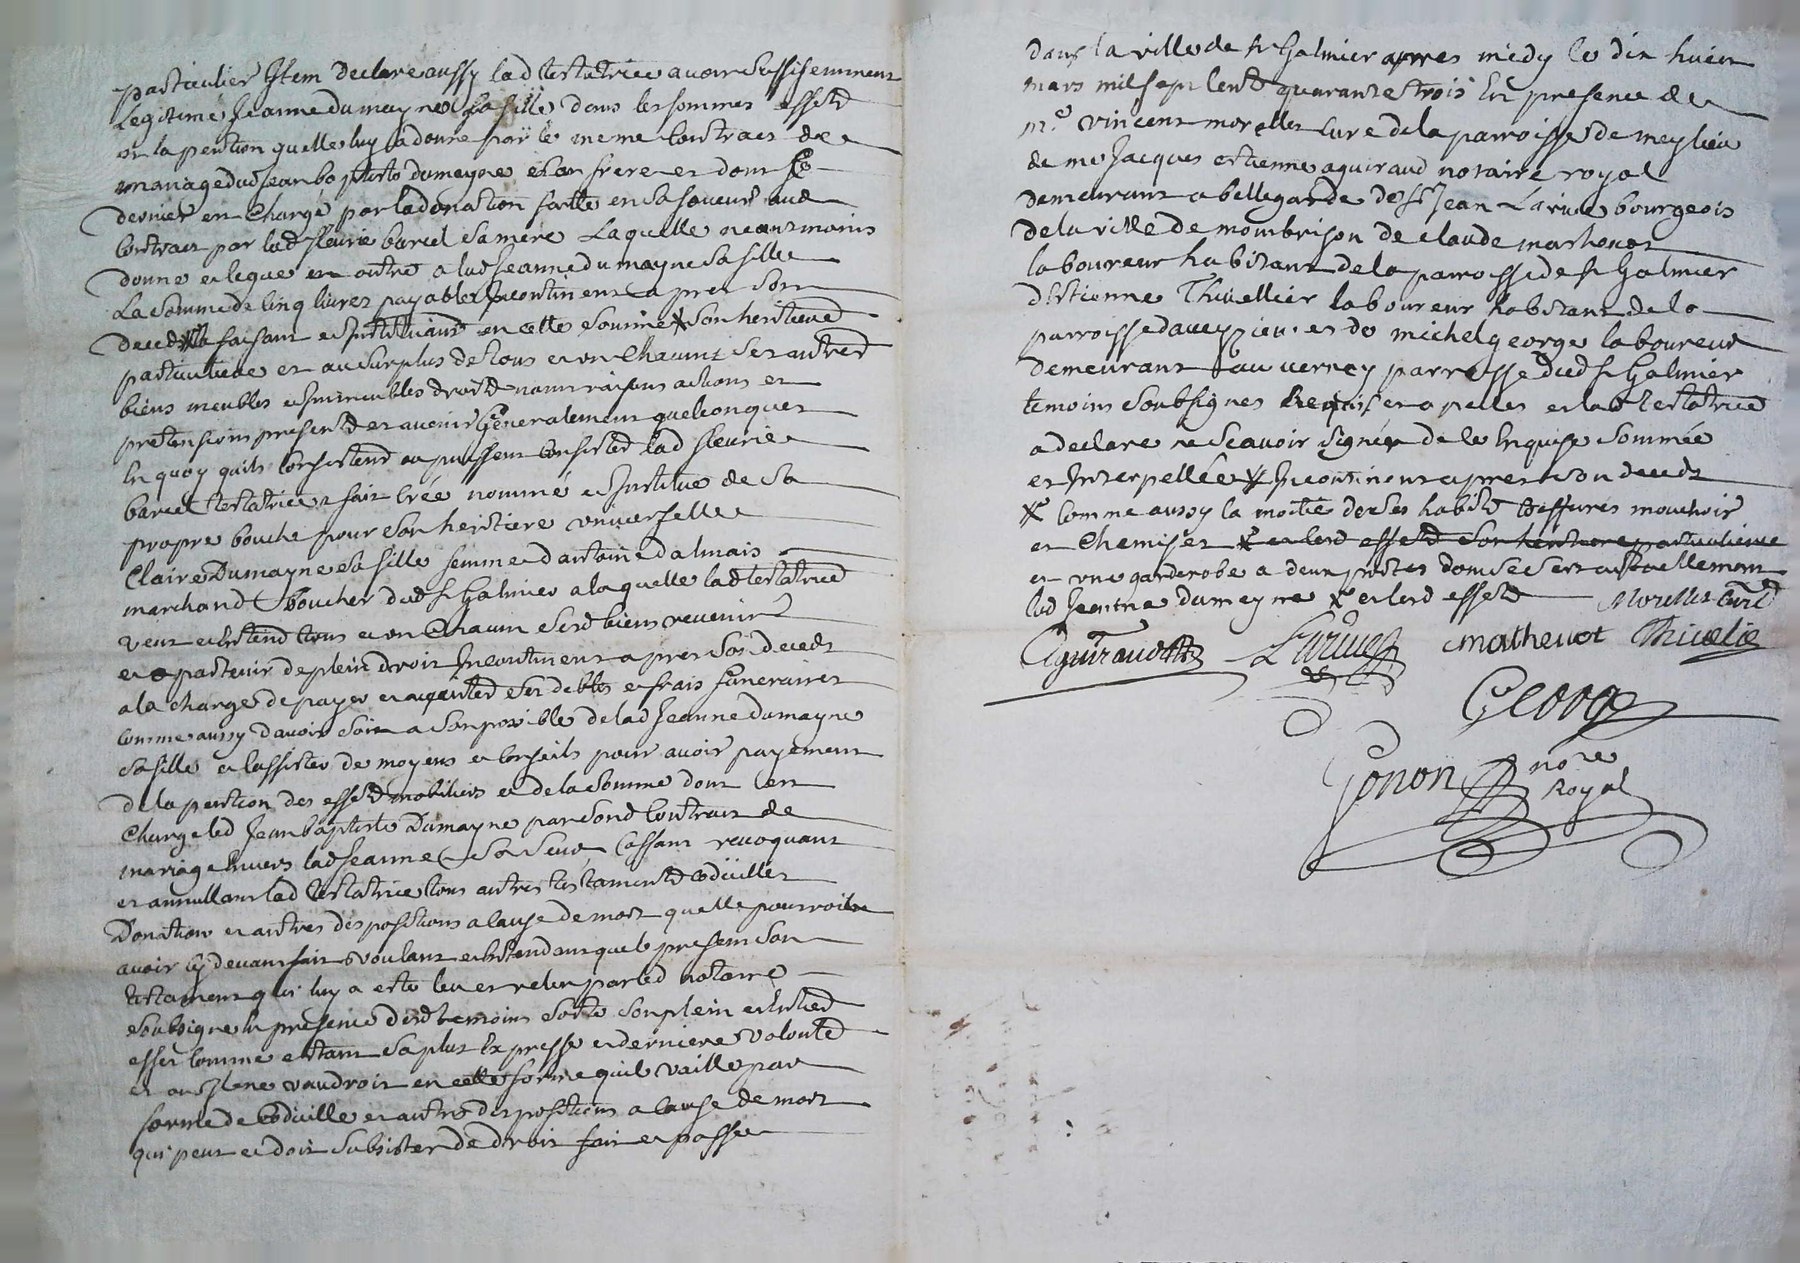 particulier Item declare aussy lad testatrice avoir suffisemment
Legitime Jeanne dumayne sa fille dans les sommes effetd
et la pention quelle luy a donne par le meme contract de
mariage dud jean baptiste dumayne son frere et dont ce
dernier en charge par la donation faitte en sa faveur aud
contract par lad fleurie barcel sa mere Laquelle neantmoins
donne et legue en outre a lad Jeanne dumayne sa fille
La somme de cinq livres payables Incontinent apres son
deced faisant et Instituant en cette somme x son heritiere
particuliere et au surplus de tous et un chacuns ses autres
biens meubles et immeubles droitd noms raisons actions et
pretensions presentd et avenir Generalement quelconques
En quoy quils consistend ou puissent consister lad fleurie
barcel testatrice a fait créé nommé et Institué de sa
propre bouche pour son heritiere universelle
Claire Dumayne sa fille femme dantoine dalmais
marchand boucher dud st Galmier a laquelle lad testatrice
veut et Entend tous et un Chacun sesd biens revenir
et apartenir de plein droit Incontinent apres son deced
a la charge de payer et acquiter ses debtes et frais funeraires
comme aussy davoir soin a son possible de lad Jeanne dumayne
sa fille et lassister de moyens et conseils pour avoir payement
de la pention des effetd mobiliers et de la somme dont est
Charge led Jean baptiste Dumayne par sond Contract de
mariage Envers lad Jeanne sa seur Cassant revoquant
et annullant lad testatrice tous autres testamentd codicilles
Donation et autres dispositions a cause de mort quelle pourroit
avoir cy devant fait voulant et Entendant que le present son
testament qui luy a esté leu et releu par led notaire
soubsigne En presence desd temoins sorte son plein et Entier
effet comme estant sa plus Expresse et derniere volonté
et ou Il ne vaudroit en cette forme quil vaille par
forme de codicille et autre dispositions a cause de mort
qui peut et doit subsister de droit fait et passé
dans la ville de st Galmier apres midy le dix huict
mars mil sept cent quarante trois En presence de
mre vincent morelles curé de la parroisse de meylieu
de me Jacques estienne aguiraud notaire royal
demeurant a bellegarde de sr Jean Larue bourgeois
de la ville de mombrison de claude mathevot
laboureur habitant de la parroisse de st Galmier
d'Estienne Thivellier laboureur habitant de la
parroisse daveyzieu et de michel george laboureur
demeurant au verney parroisse dud st Galmier
temoins soubsignes Requis et apelles et lad testatrice
a declare ne scavoir signer de ce Enquise sommée
et Interpellée x Incontinent apres son deced
x comme aussy la moitié de ses habitd coiffures mouchoir
et chemises x et lesd effetd son heritiere particuliere
et une garderobe a deux portes dont se sert actuellement
lad Jeanne dumayne x et lesd effetd Morelles curé
Aguiraud Larue mathevot Thivelie
George
Gonon nore
Royal